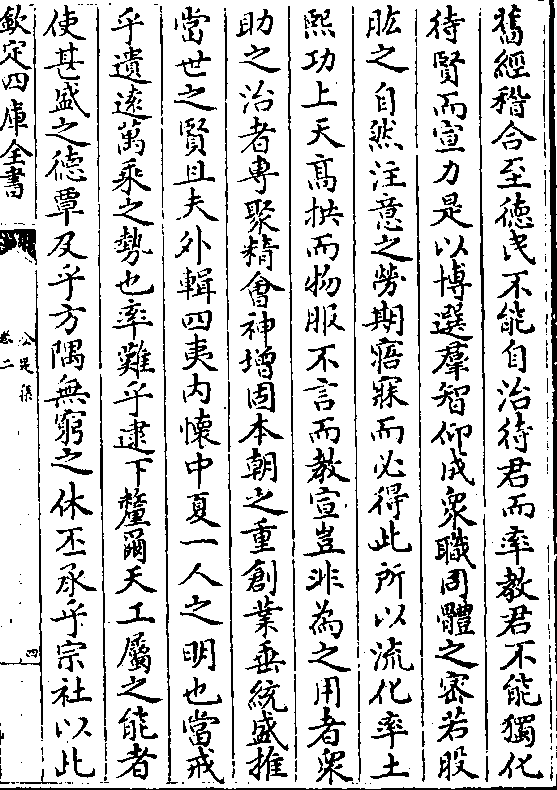 舊經稽合至徳民不能自治待君而率教君不能獨化
待賢而宣力是以博選羣智仰成衆職同體之審若股
肱之自然注意之勞期寤寐而必得此所以流化率土
熈功上天髙拱而物服不言而教宣豈非為之用者衆
助之治者専聚精㑹神増固本朝之重創業垂統盛推
當世之賢且夫外輯四夷内懐中夏一人之明也當戒
乎遺逺萬乘之勢也率難乎逮下釐爾天工屬之能者
使甚盛之徳覃及乎方隅無窮之休丕承乎宗社以此
欽定四庫全書
公是集
卷二
四